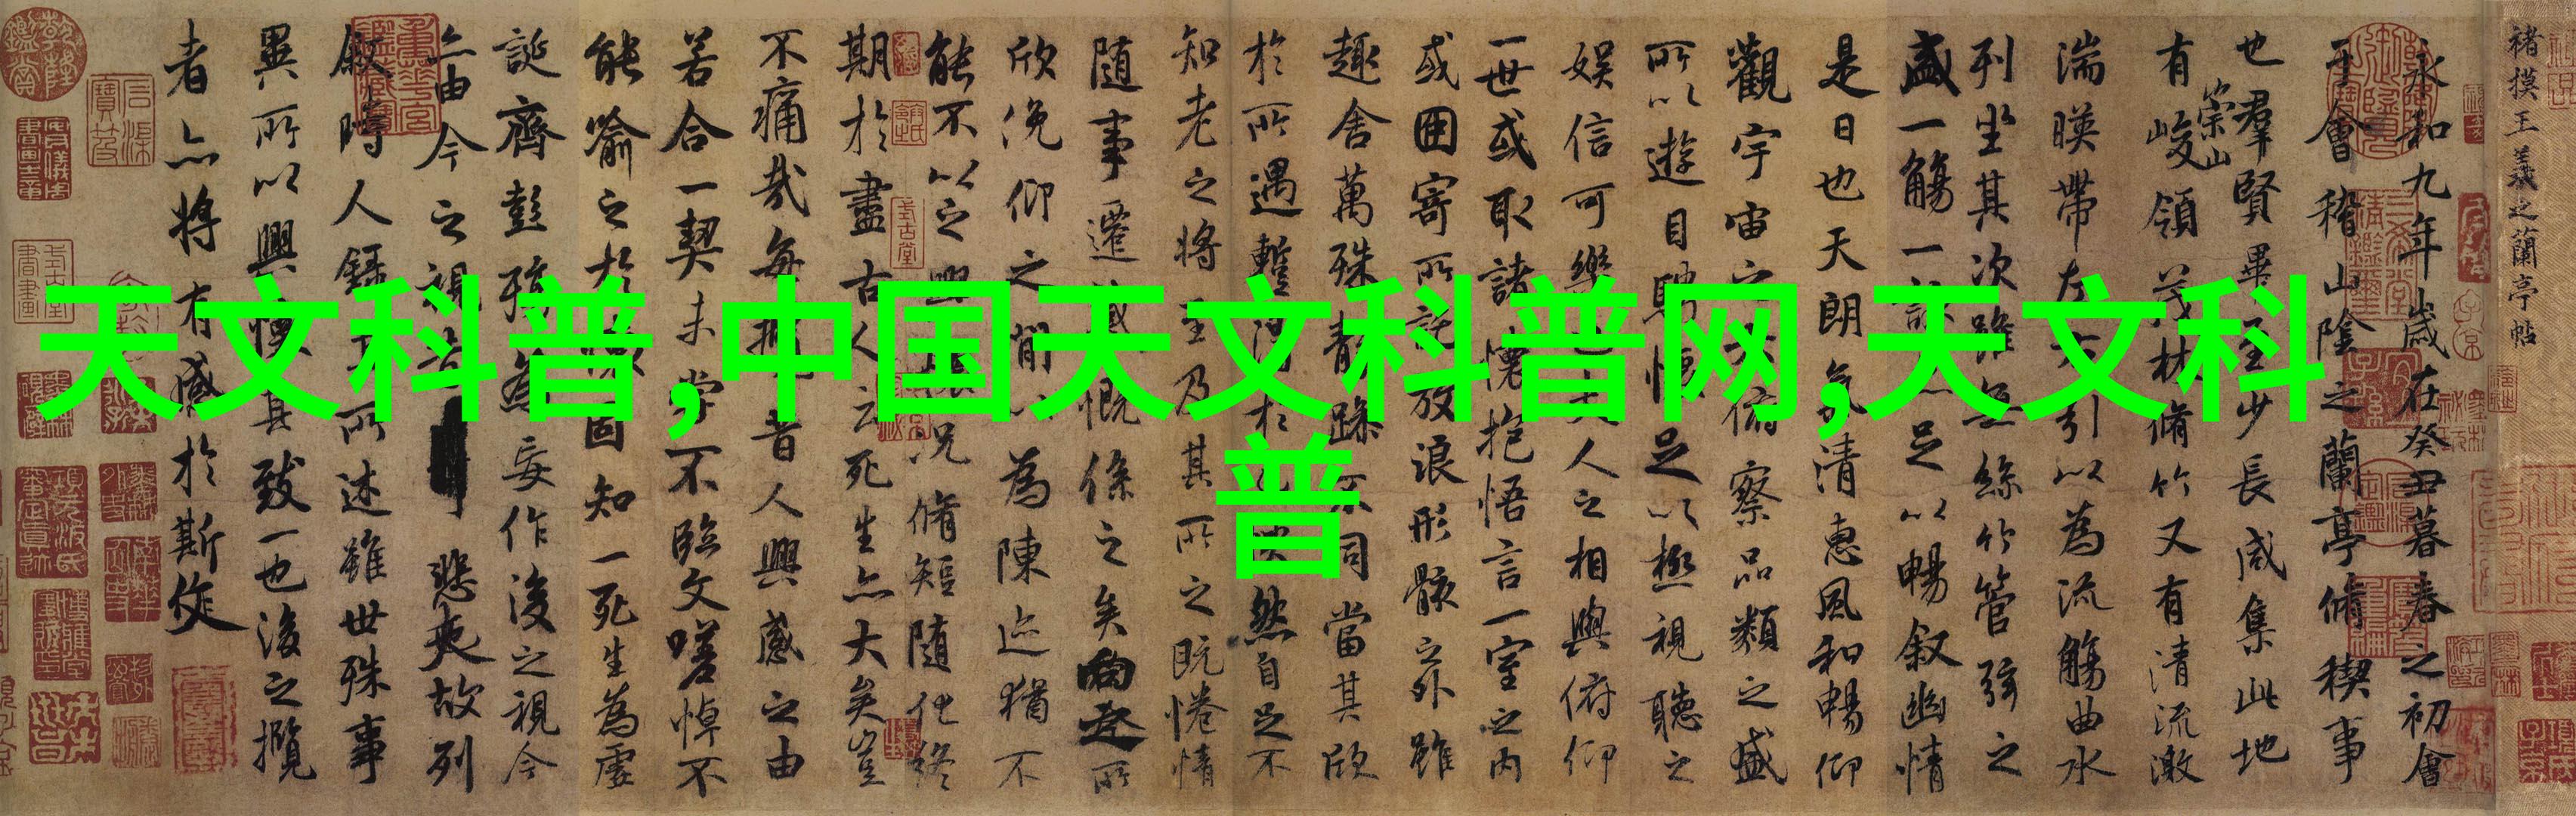 天文科普,中国天文科普网,天文科
普
褚摸王羲之蘭亭帖
永和九年歲在癸丑暮春之初會
于會稽山陰之蘭亭脩稧事
也羣賢畢至少長咸集此地
有崇山峻領茂林脩竹又有清流激
湍暎帶左右引以為流觴曲水
列坐其次雖無絲竹管弦之
盛一觴一詠亦足以暢叙幽情
是日也天朗氣清惠風和暢仰
觀宇宙之大俯察品類之盛
所以遊目騁懷足以極視聽之
娛信可樂也夫人之相與俯仰
一世或取諸懷抱悟言一室之內
或因寄所託放浪形骸之外雖
趣舍萬殊静躁不同當其欣
於所遇暫得於己怏然自足不
知老之將至及其所之既惓情
隨事遷感慨係之矣向之所
欣俛仰之閒以為陳迹猶不
能不以之興懷況脩短隨化終
期於盡古人云死生亦大矣豈
不痛哉每攬昔人興感之由
若合一契未嘗不臨文嗟悼不
能喻之於懷固知一死生為虛
誕齊彭殤為妄作後之視今
亦由今之視昔悲夫故列
叙時人錄其所述雖世殊事
異所以興懷其致一也後之攬
者亦將有感於斯文